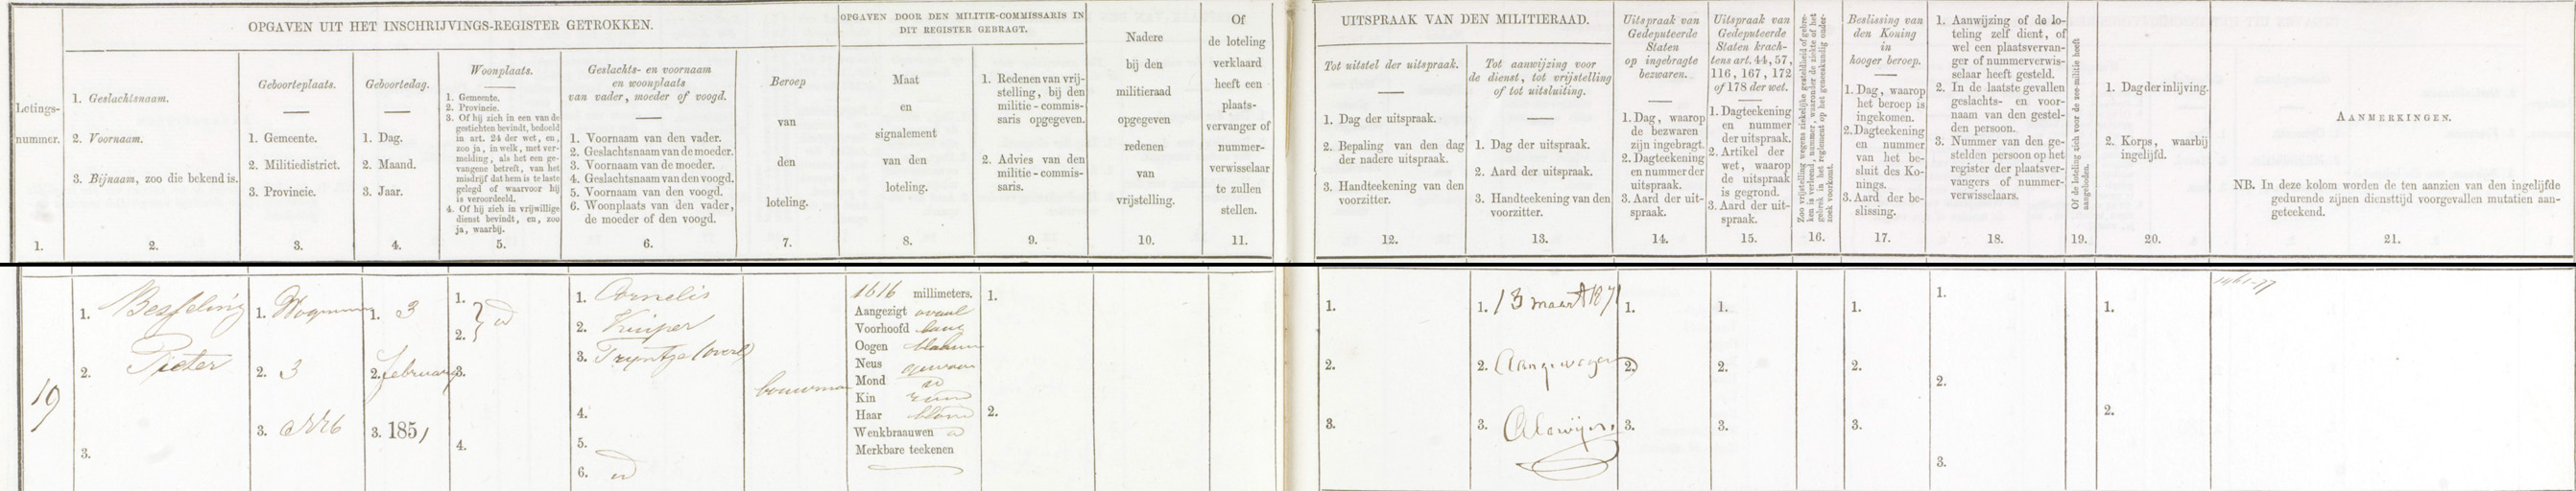 OPGAVEN UIT HET INSCHRIJVINGS-REGISTER GETROKKEN.
Lotings-
nummer.
1.
1. Geslachtsnaam.
2. Voornaam.
3. Bijnaam, zoo die bekend is.
2.
Geboorteplaats.
1. Gemeente.
2. Militiedistrict.
3. Provincie.
3.
Geboortedag.
1. Dag.
2. Maand.
3. Jaar.
4.
Woonplaats.
1. Gemeente.
2. Provincie.
3. Of hij zich in een van de
gestichten bevindt, bedoeld
in art. 24 der wet, en,
zoo ja, in welk, met ver-
melding, als het een ge-
vangene betreft, van het
misdrijf dat hem is te laste
gelegd of waarvoor hij
is veroordeeld.
4. Of hij zich in vrijwillige
dienst bevindt, en, zoo
ja, waarbij.
5.
Geslachts- en voornaam
en woonplaats
van vader, moeder of voogd.
1. Voornaam van den vader.
2. Geslachtsnaam van de moeder.
3. Voornaam van de moeder.
4. Geslachtsnaam van den voogd.
5. Voornaam van den voogd.
6. Woonplaats van den vader,
de moeder of den voogd.
6.
Beroep
van
den
loteling.
7.
OPGAVEN DOOR DEN MILITIE-COMMISSARIS IN
DIT REGISTER GEBRAGT.
Maat
en
signalement
van den
loteling.
8.
1. Redenen van vrij-
stelling, bij den
militie-commis-
saris opgegeven.
2. Advies van den
militie-commis-
saris.
9.
Nadere
bij den
militieraad
opgegeven
redenen
van
vrijstelling.
10.
Of
de loteling
verklaard
heeft een
plaats-
vervanger of
nummer-
verwisselaar
te zullen
stellen.
11.
UITSPRAAK VAN DEN MILITIERAAD.
Tot uitstel der uitspraak.
1. Dag der uitspraak.
2. Bepaling van den dag
der nadere uitspraak.
3. Handteekening van den
voorzitter.
12.
Tot aanwijzing voor
de dienst, tot vrijstelling
of tot uitsluiting.
1. Dag der uitspraak.
2. Aard der uitspraak.
3. Handteekening van den
voorzitter.
13.
Uitspraak van
Gedeputeerde
Staten
op ingebragte
bezwaren.
1. Dag, waarop
de bezwaren
zijn ingebragt.
2. Dagteekening
en nummer der
uitspraak.
3. Aard der uit-
spraak.
14.
Uitspraak van
Gedeputeerde
Staten krach-
tens art. 44, 57,
116, 167, 172
of 178 der wet.
1. Dagteekening
en nummer
der uitspraak.
2. Artikel der
wet, waarop
de uitspraak
is gegrond.
3. Aard der uit-
spraak.
15.
Zoo vrijstelling wegens ziekelijke gesteldheid of gebre-
ken is verleend, nummer, waaronder de ziekte of het
gebrek in het reglement op het geneeskundig onder-
zoek voorkomt.
16.
Beslissing van
den Koning
in
hooger beroep.
1. Dag, waarop
het beroep is
ingekomen.
2. Dagteekening
en nummer
van het be-
sluit des Ko-
nings.
3. Aard der be-
slissing.
17.
1. Aanwijzing of de lo-
teling zelf dient, of
wel een plaatsvervan-
ger of nummerverwis-
selaar heeft gesteld.
2. In de laatste gevallen
geslachts- en voor-
naam van den gestel-
den persoon.
3. Nummer van den ge-
stelden persoon op het
register der plaatsver-
vangers of nummer-
verwisselaars.
18.
Of de loteling zich voor de zee-militie heeft
aangeboden.
19.
1. Dag der inlijving.
2. Korps, waarbij
ingelijfd.
20.
AANMERKINGEN.
NB. In deze kolom worden de ten aanzien van den ingelijfde
gedurende zijnen diensttijd voorgevallen mutatien aan-
geteekend.
21.
19
1. Besseling
2. Pieter
3.
1.
2. 3
3.
1. 3
2. februarij
3. 1851
1.
2.
3.
4.
1. Cornelis
2. Kuiper
3. Tryntje (overl)
4.
5.
6.
bouwman
1616 millimeters.
Aangezigt ovaal
Voorhoofd
Oogen
Neus
Mond
Kin rond
Haar blond
Wenkbraauwen
Merkbare teekenen
1.
2.
1.
2.
3.
1. 13 maart 1871
2. Aangewezen
3. Alewijn
1.
2.
3.
1.
2.
3.
1.
2.
3.
1.
2.
3.
1.
2.